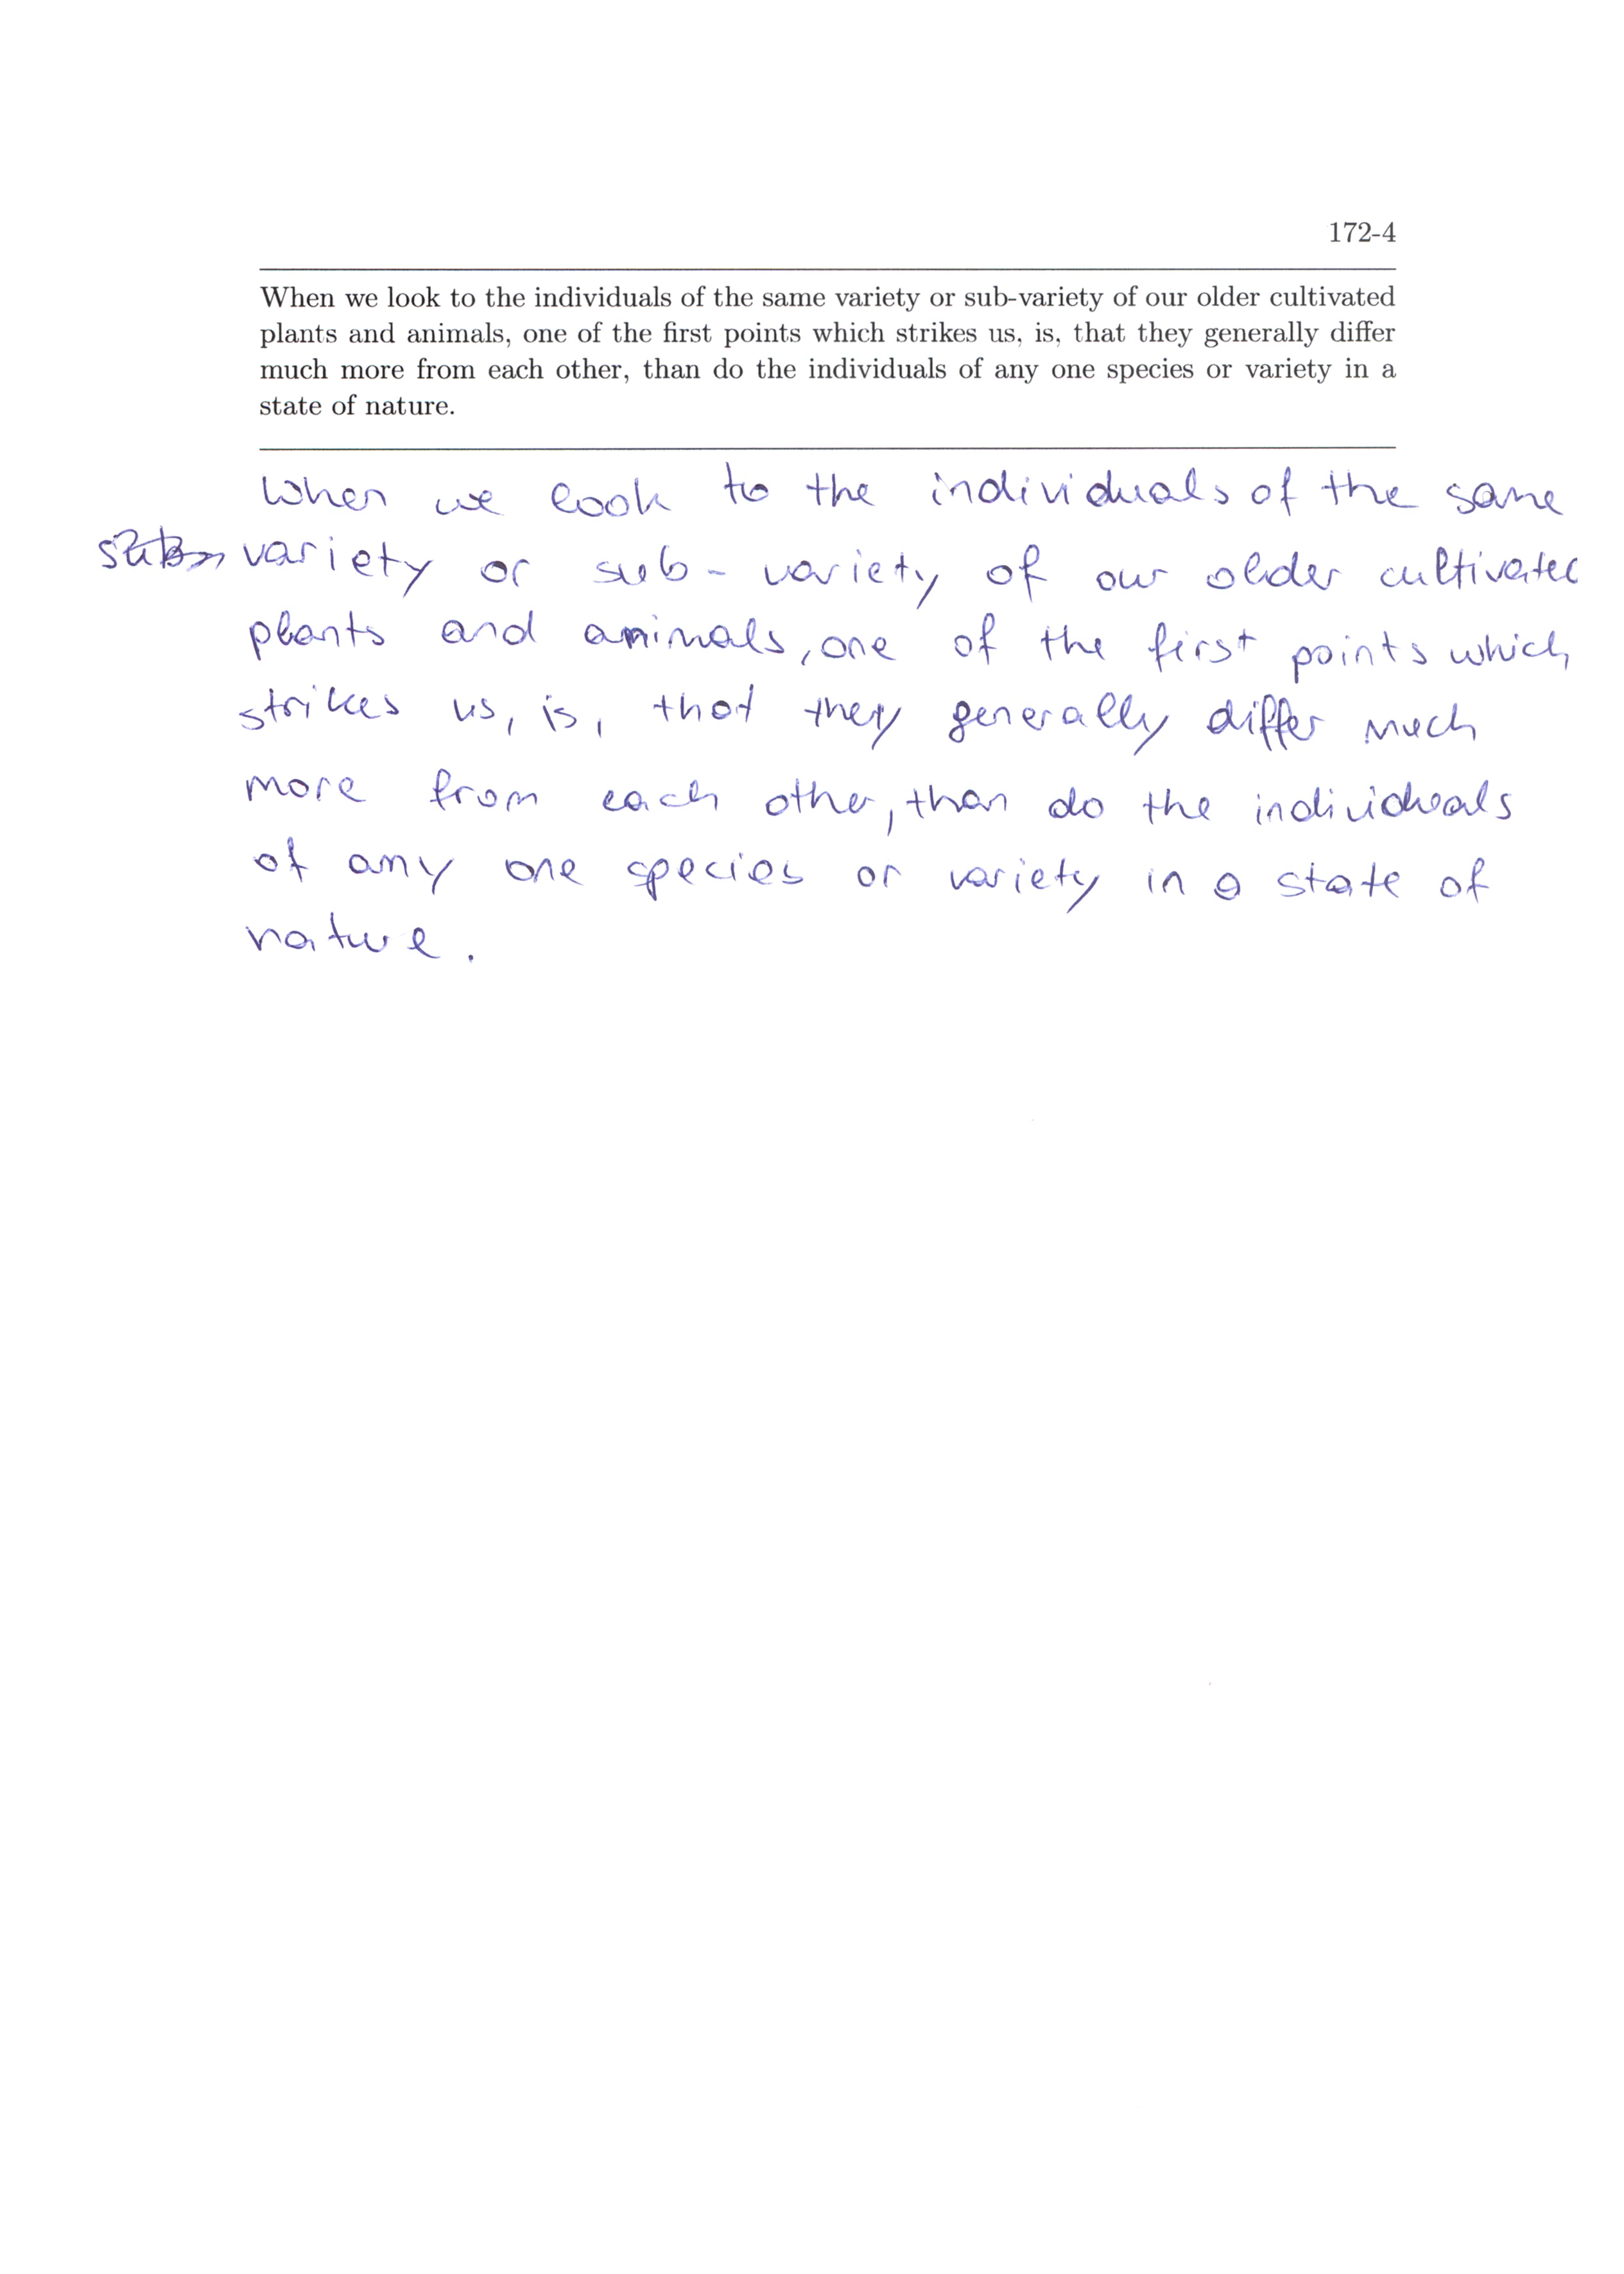 172-4
When we look to the individuals of the same variety or sub-variety of our older cultivated
plants and animals, one of the first points which strikes us, is, that they generally differ
much more from each other, than do the individuals of any one species or variety in a
state of nature.
When we look to the individuals of the same
variety or sub-variety of our older cultivated
plants and animals, one of the first points which
strikes us, is, that they generally differ much
more from each other, than do the individuals
of any one species or variety in a state of
nature.